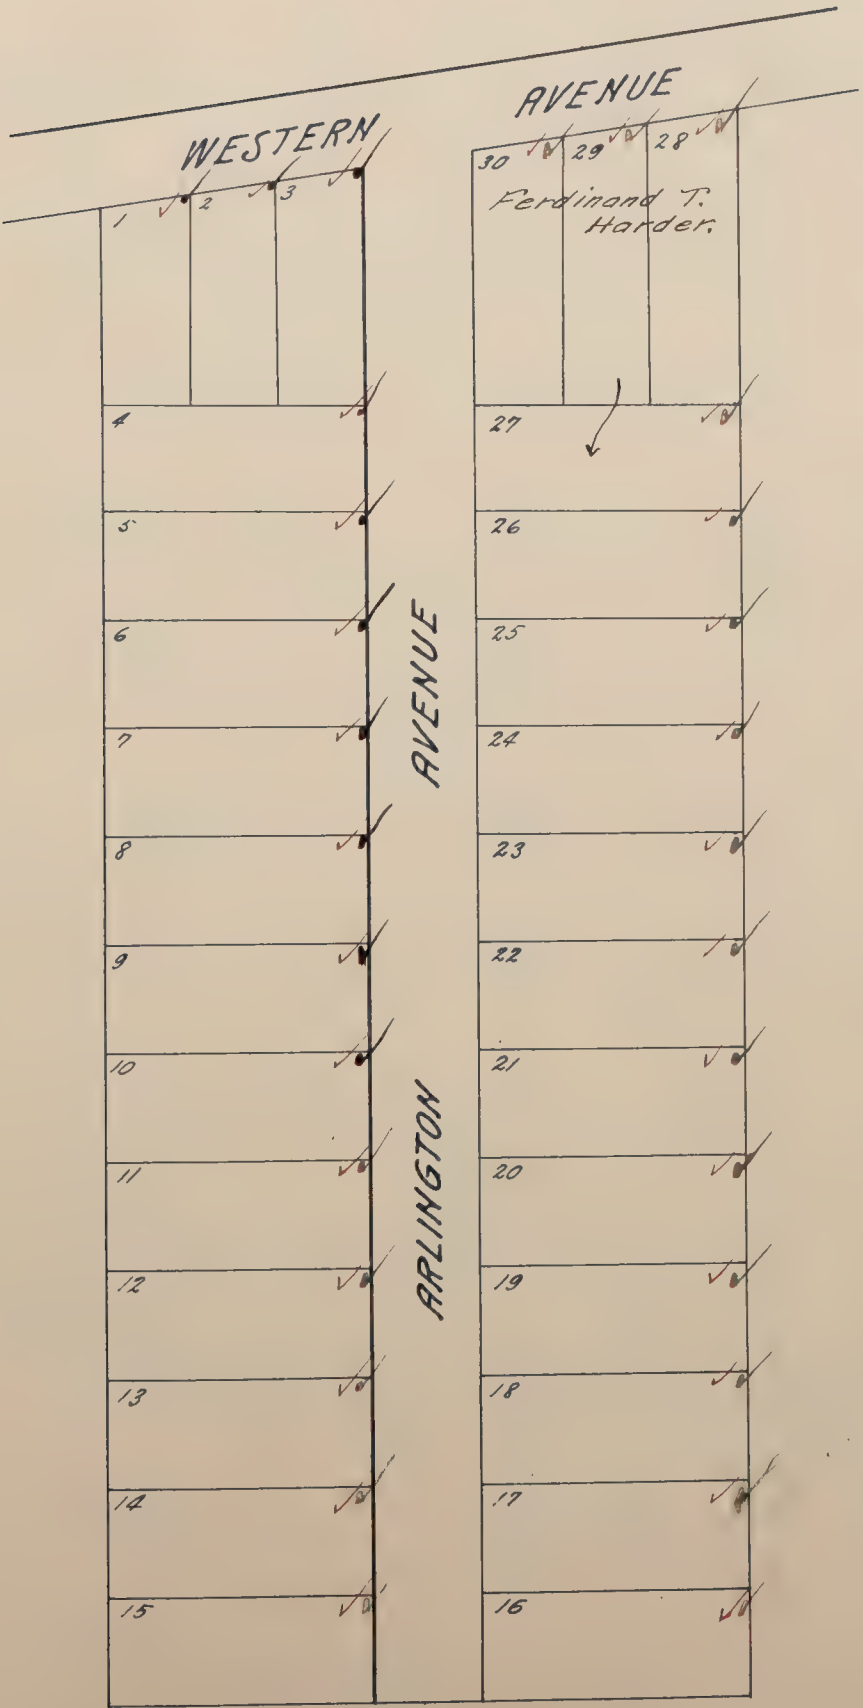 WESTERN AVENUE
1 2 3
30 29 28
Ferdinand T.
Harder.
4
5
6
7
8
9
10
11
12
13
14
15
AVENUE
ARLINGTON
27
26
25
24
23
22
21
20
19
18
17
16